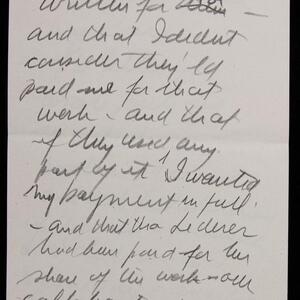 written for them —
and that I didnt
consider they'ld
paid me for that
work - and that
if they used any
part of it I wanted
my payment in full.
- and that tho Lederer
had been paid for her
share of the work - our